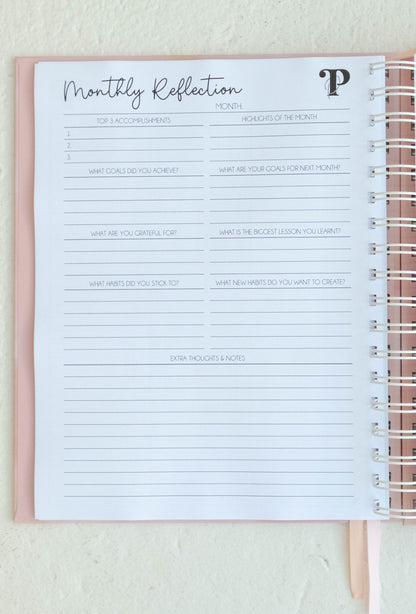 Monthly Reflection
P
MONTH:
TOP 3 ACCOMPLISHMENTS
HIGHLIGHTS OF THE MONTH
1.
2.
3.
WHAT GOALS DID YOU ACHIEVE?
WHAT ARE YOUR GOALS FOR NEXT MONTH?
WHAT ARE YOU GRATEFUL FOR?
WHAT IS THE BIGGEST LESSON YOU LEARNT?
WHAT HABITS DID YOU STICK TO?
WHAT NEW HABITS DO YOU WANT TO CREATE?
EXTRA THOUGHTS & NOTES